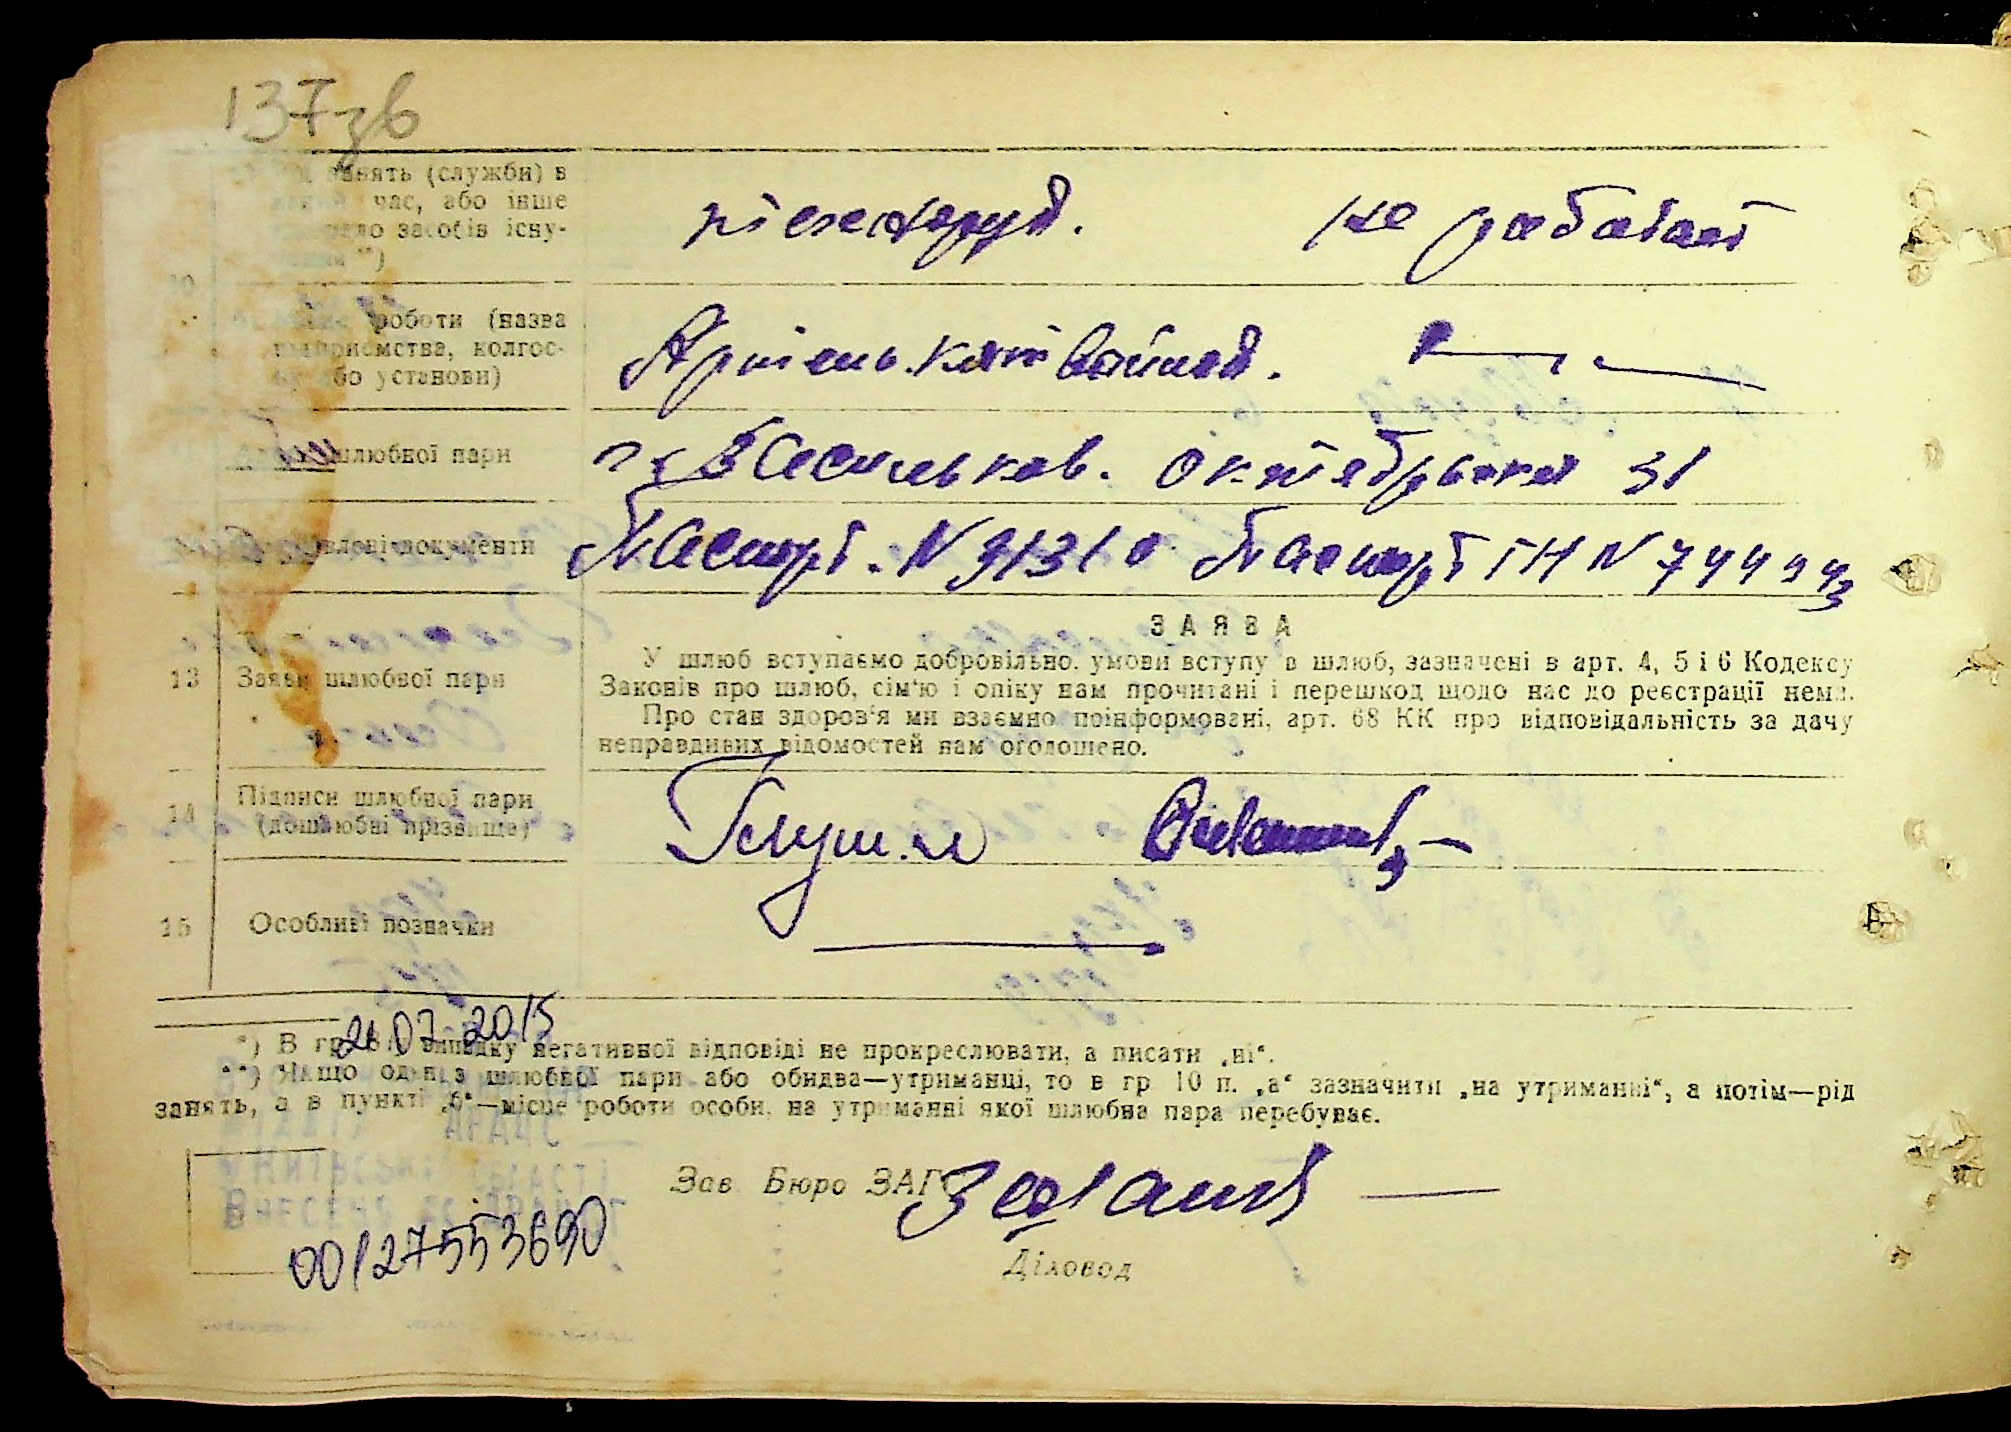 137зв
занять (служби) в
час, або інше
засобів існу-
не работает
роботи (назва
підприємства, колгос-
або установи)
шлюбної пари
г. Васильков. Октябрьская 31
документи
Паспорт. N 91310 Паспорт ГН N
ЗАЯВА
13 Заяви шлюбної пари
У шлюб вступаємо добровільно. умови вступу в шлюб, зазначені в арт. 4, 5 і 6 Кодексу
Законів про шлюб, сім'ю і опіку нам прочитані і перешкод щодо нас до реєстрації нема.
Про стан здоров'я ми взаємно поінформовані, арт. 68 КК про відповідальність за дачу
неправдивих відомостей нам оголошено.
14 Підписи шлюбної пари
(дошлюбні прізвища)
15 Особливі позначки
21.07.2015
*) В гр. випадку негативної відповіді не прокреслювати, а писати „ні“.
**) Якщо один з шлюбної пари або обидва—утриманці, то в гр 10 п. „а“ зазначити „на утриманні“, а потім—рід
занять, а в пункті „б“—місце роботи особи, на утриманні якої шлюбна пара перебуває.
Зав. Бюро ЗАГС
Діловод
00127553690